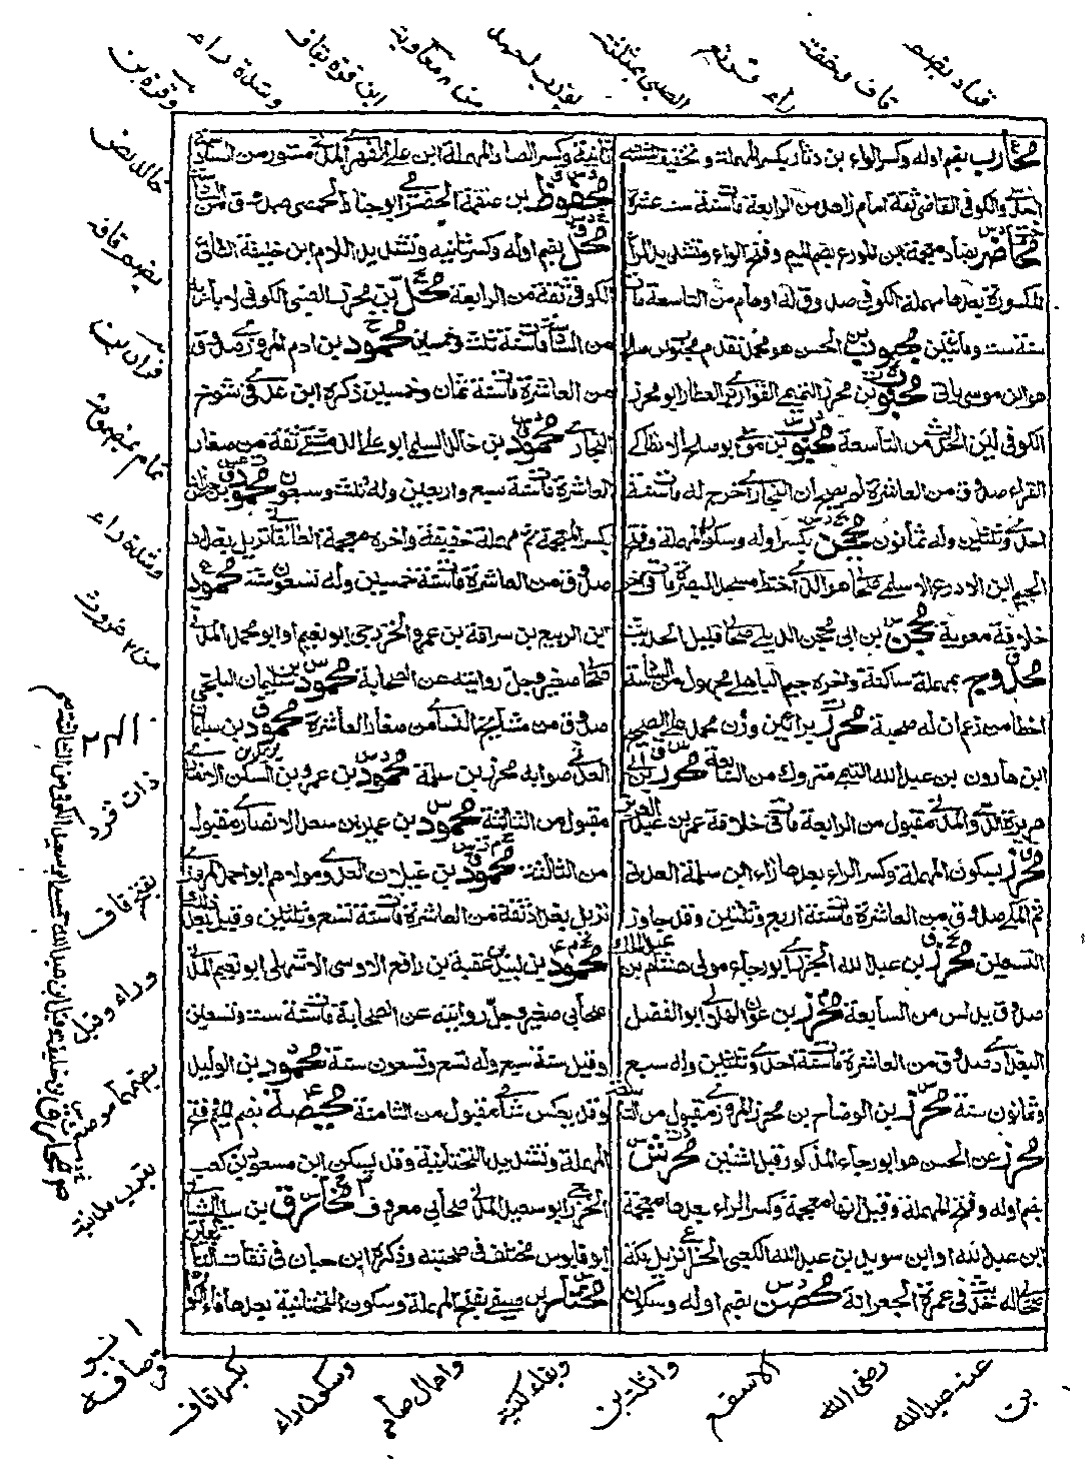 محارب بضم اوله وكسر الراء بن دثار بكسر المهملة وتخفيف المثلثة
السدوسي الكوفي القاضي ثقة امام زاهد من الرابعة مات سنة ست عشرة
محاضر بضاد معجمة ابن المورع بضم الميم وفتح الواو وتشديد الراء
المكسورة بعدها مهملة الكوفي صدوق له اوهام من التاسعة مات
سنة ست ومائتين محبوب بن الحسن هو محمد تقدم محبوب
هو ابن موسى ياتي محبوب بن محرز التميمي القواريري العطار ابو محرز
الكوفي لين الحديث من التاسعة محبوب بن موسى ابو صالح الانطاكي
الفراء صدوق من العاشرة لم يصح ان البخاري اخرج له مات سنة
احدى وثلثين وله ثمانون محجن بكسر اوله وسكون المهملة وفتح
الجيم ابن الادرع الاسلمي صحابي هو الذي اختط مسجد البصرة مات في آخر
خلافة معوية محجن بن ابي محجن الديلي صحابي قليل الحديث
محدوج بمهملة ساكنة واخره جيم الباهلي مجهول من السادسة
اخطأ من زعم ان له صحبة محرر برائين وزن محمد على الصحيح
ابن هارون بن عبد الله التيمي متروك من السابعة محرر بن ابي
هريرة الدوسي المدني مقبول من الرابعة مات في خلافة عمر بن عبد العزيز
محرز بسكون المهملة وكسر الراء بعدها زاء ابن سلمة العدني
ثم المكي صدوق من العاشرة مات سنة اربع وثلثين وقد جاوز
التسعين محرز بن عبد الله الجزري ابو رجاء مولى هشام بن عبد الملك
صدوق يدلس من السابعة محرز بن عون الهلالي ابو الفضل
البغدادي صدوق من العاشرة مات سنة احدى وثلثين وله سبع
وثمانون سنة محرز بن الوضاح بن محرز المروزي مقبول من التاسعة
محرز عن الحسن هو ابو رجاء المذكور قبل اثنين محرش
بضم اوله وفتح المهملة وقيل انها معجمة وكسر الراء بعدها معجمة
ابن عبد الله او ابن سويد بن عبد الله الكعبي الخزاعي نزيل مكة
صحابي له حديث في عمرة الجعرانة محصن بضم اوله وسكون
ثانيه وكسر الصاد المهملة ابن علي الفهري المدني مستور من السادسة
محفوظ بن علقمة الحضرمي ابو جنادة الحمصي صدوق من السادسة
محل بضم اوله وكسر ثانيه وتشديد اللام ابن خليفة الطائي
الكوفي ثقة من الرابعة محل بن محرز الضبي الكوفي لا بأس به
من السادسة مات سنة ثلث وخمسين محمود بن ادم المروزي صدوق
من العاشرة مات سنة ثمان وخمسين ذكره ابن عدي في شيوخ
البخاري محمود بن خالد السلمي ابو علي الدمشقي ثقة من صغار
العاشرة مات سنة سبع واربعين وله ثلث وسبعون محمود بن خداش
بكسر المعجمة ثم مهملة خفيفة واخره معجمة الطالقاني نزيل بغداد
صدوق من العاشرة مات سنة خمسين وله تسعون سنة محمود
ابن الربيع بن سراقة بن عمرو الخزرجي ابو نعيم او ابو محمد المدني
صحابي صغير وجل روايته عن الصحابة محمود بن سليمان البلخي
صدوق من مشايخ النسائي من صغار العاشرة محمود بن سلمة
العدني صوابه محرز بن سلمة محمود بن عمرو بن يزيد بن السكن الانصاري
مقبول من الثالثة محمود بن عمير بن سعد الانصاري مقبول
من الثالثة محمود بن غيلان العدوي مولاهم ابو احمد المروزي
نزيل بغداد ثقة من العاشرة مات سنة تسع وثلثين وقيل بعد ذلك
محمود بن لبيد بن عقبة بن رافع الاوسي الاشهلي ابو نعيم المدني
صحابي صغير وجل روايته عن الصحابة مات سنة ست وتسعين
وقيل سنة سبع وله تسع وتسعون سنة محمود بن الوليد
وقد يعكس شامي مقبول من الثامنة محيصة بضم الميم وفتح
المهملة وتشديد التحتانية وقد تسكن ابن مسعود بن كعب
الخزرجي ابو سعيد المدني صحابي معروف مخارق بن سليم الشيباني
ابو قابوس مختلف في صحبته وذكره ابن حبان في ثقات التابعين
مختار بن صيفي بفتح المهملة وسكون التحتانية بعدها فاء الكوفي
قاف وخفة
راء
الضبي بمثلثة
من معاوية
ابن قرة بقاف
وشدة راء
وقرة بن
خالد
بضم قافه
قران بن
تمام بمضمومة
وشدة راء
ذات قرد
بفتح قاف
وراء وقيل
بضمهما
بقرب مدينة
بكسر قاف
وسكون راء
واهمال صاد
وبفاء كنية
واثلة بن
الاسقع
رضي الله
عنه عبد الله
بن